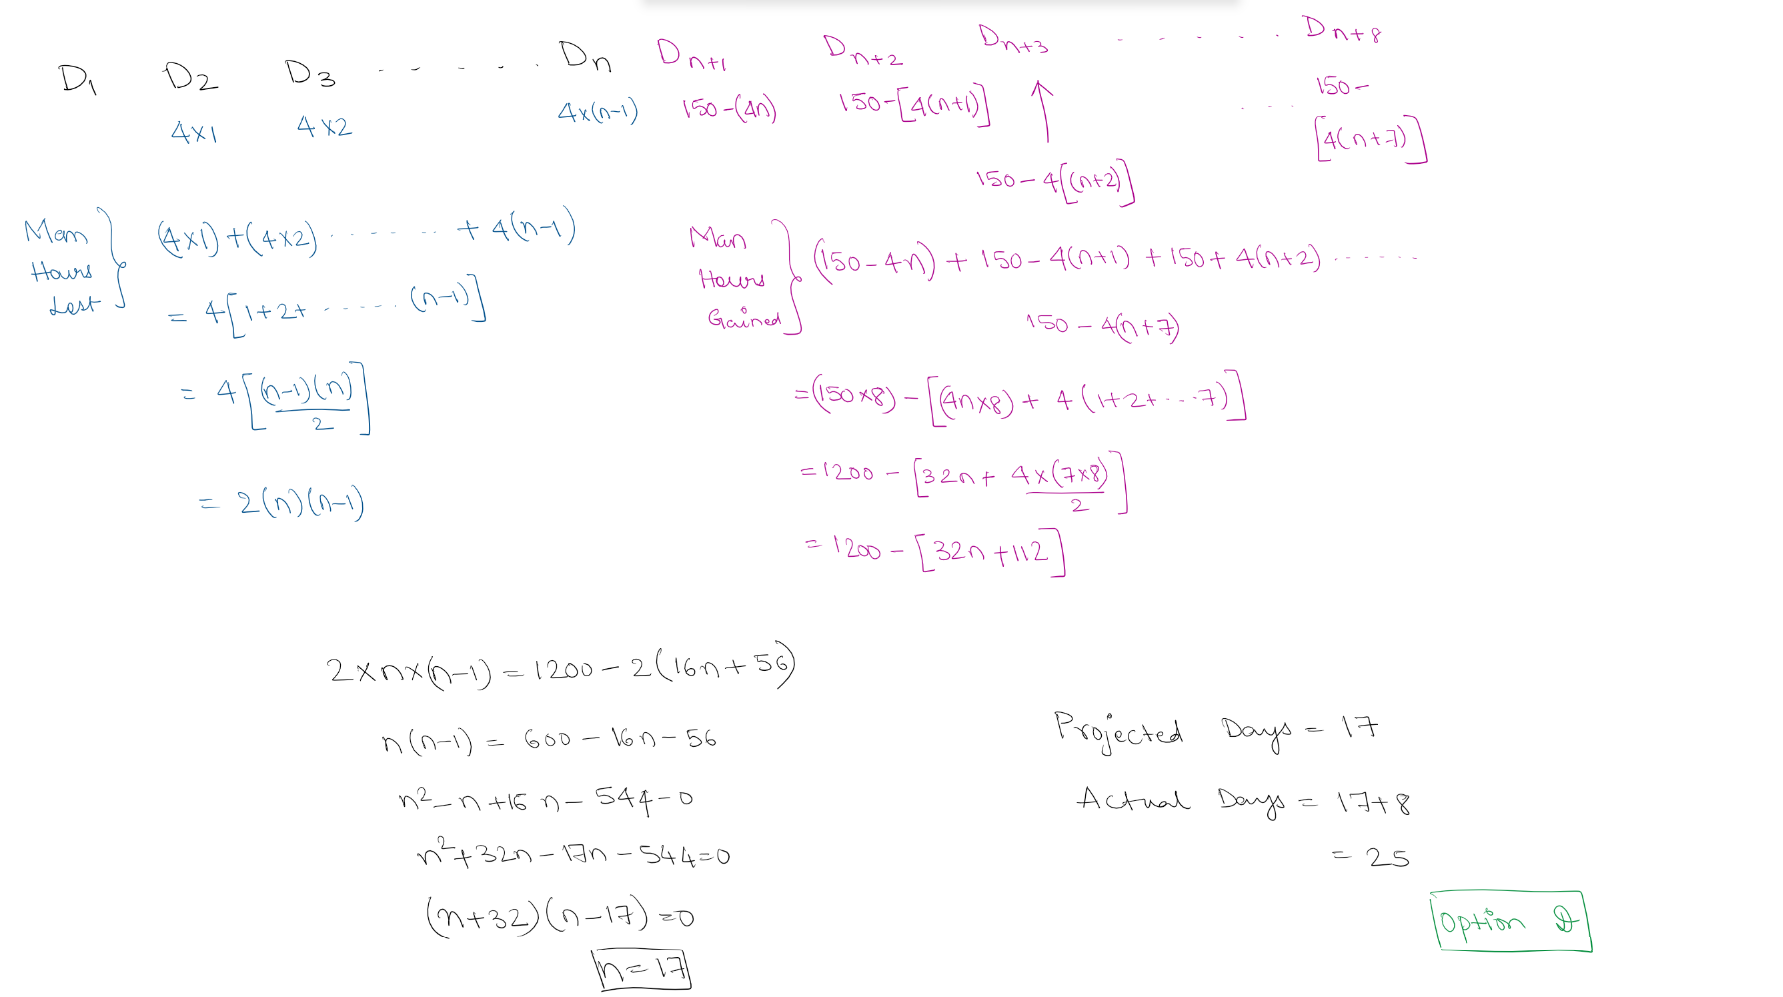 D₁ D₂ D₃ - - - - - . Dn Dn+1 Dn+2 Dn+3 - - - - - . Dn+8
4×1 4×2 4×(n-1) 150-(4n) 150-[4(n+1)] ↑ - - - 150-[4(n+7)]
150-4[(n+2)]
Man Hours Lost } (4×1)+(4×2) - - - - - - + 4(n-1)
= 4[1+2+ - - - - - - (n-1)]
= 4[(n-1)(n)/2]
= 2(n)(n-1)
Man Hours Gained } (150-4n) + 150-4(n+1) + 150+4(n+2) - - - - - -
150-4(n+7)
=(150×8) - [(4n×8) + 4(1+2+---7)]
=1200 - [32n+ 4×(7×8)/2]
=1200 - [32n+112]
2×n×(n-1) = 1200-2(16n+56)
n(n-1) = 600-16n-56
n²-n+16n-544-0
n²+32n-17n-544=0
(n+32)(n-17)=0
n=17
Projected Days = 17
Actual Days = 17+8
= 25
Option D